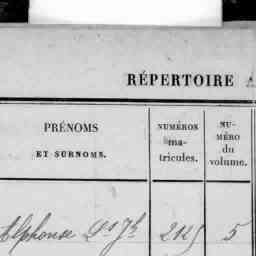 RÉPERTOIRE
PRÉNOMS
ET SURNOMS.
NUMÉROS
ma-
tricules.
NU-
MÉRO
du
volume.
Alphonse Ls Jh 2125 5